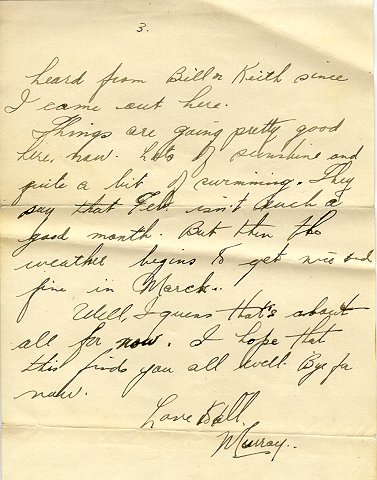 3.
heard from Bill or Keith since
I came out here.
Things are going pretty good
here, now. Lots of sunshine and
quite a bit of swimming. They
say that Feb. isn't such a
good month. But then the
weather begins to get nice and
fine in March.
Well, I guess that's about
all for now. I hope that
this finds you all well. Bye for
now.
Love to all.
Murray.